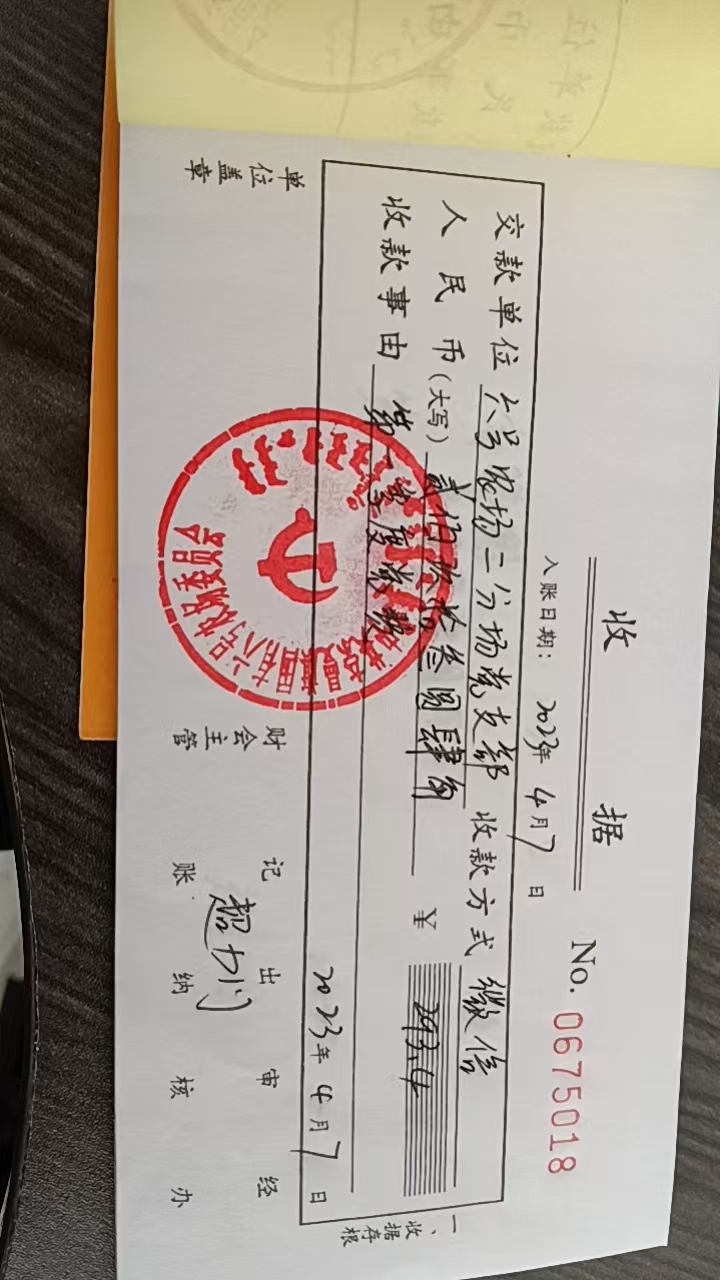 收 据
No. 0675018
入账日期： 2023年 4月7日
交款单位 六号农场二分场党支部 收款方式 微信
人民币（大写） 贰佰玖拾叁圆肆角 ￥ 293.4
收款事由 第一季度党费
2023年 4月7日
单位盖章 财会主管 记账 出纳 审核 经办
一、收据存根